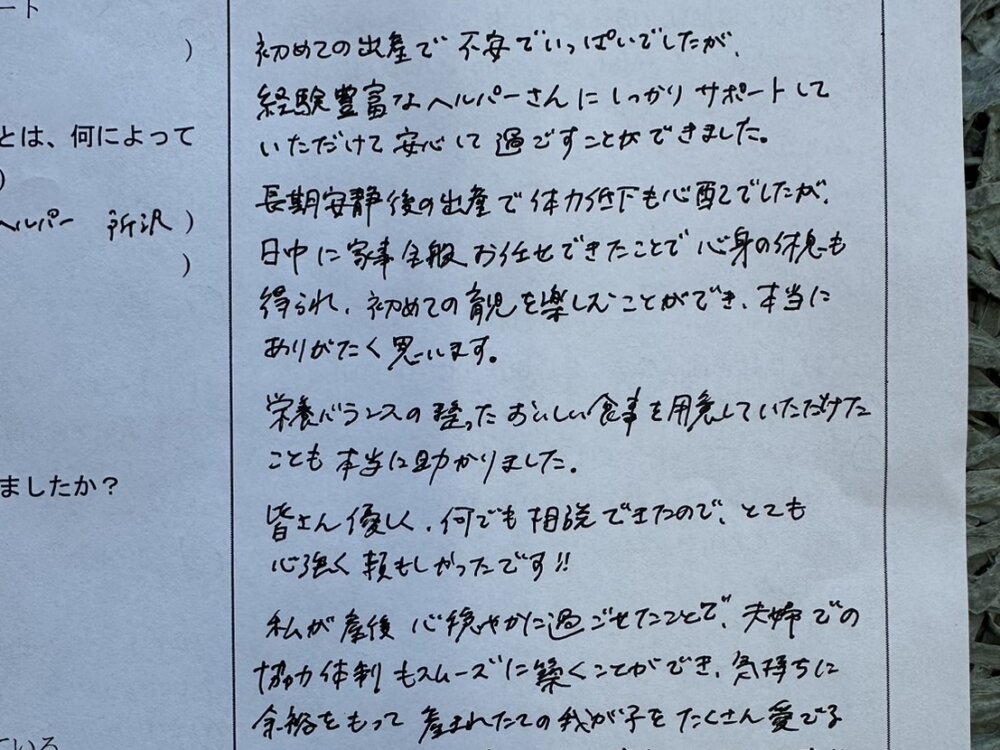 ート
)
とは、何によって
)
ヘルパー 所沢 )
)
ましたか？
ている
初めての出産で 不安でいっぱいでしたが、
経験豊富なヘルパーさんに しっかり サポートして
いただけて 安心して 過ごすことができました。
長期安静後の出産で 体力低下も心配でしたが、
日中に 家事全般 お任せできたことで 心身の休息も
得られ、初めての育児を楽しむことができ、本当に
ありがたく 思います。
栄養バランスの 整った おいしい食事を用意していただけた
ことも 本当に助かりました。
皆さん優しく、何でも 相談できたので、とても
心強く 頼もしかったです!!
私が産後 心穏やかに過ごせたことで、夫婦での
協力体制 もスムーズに築くことができ、気持ちに
余裕をもって 産まれたての我が子を たくさん 愛でる